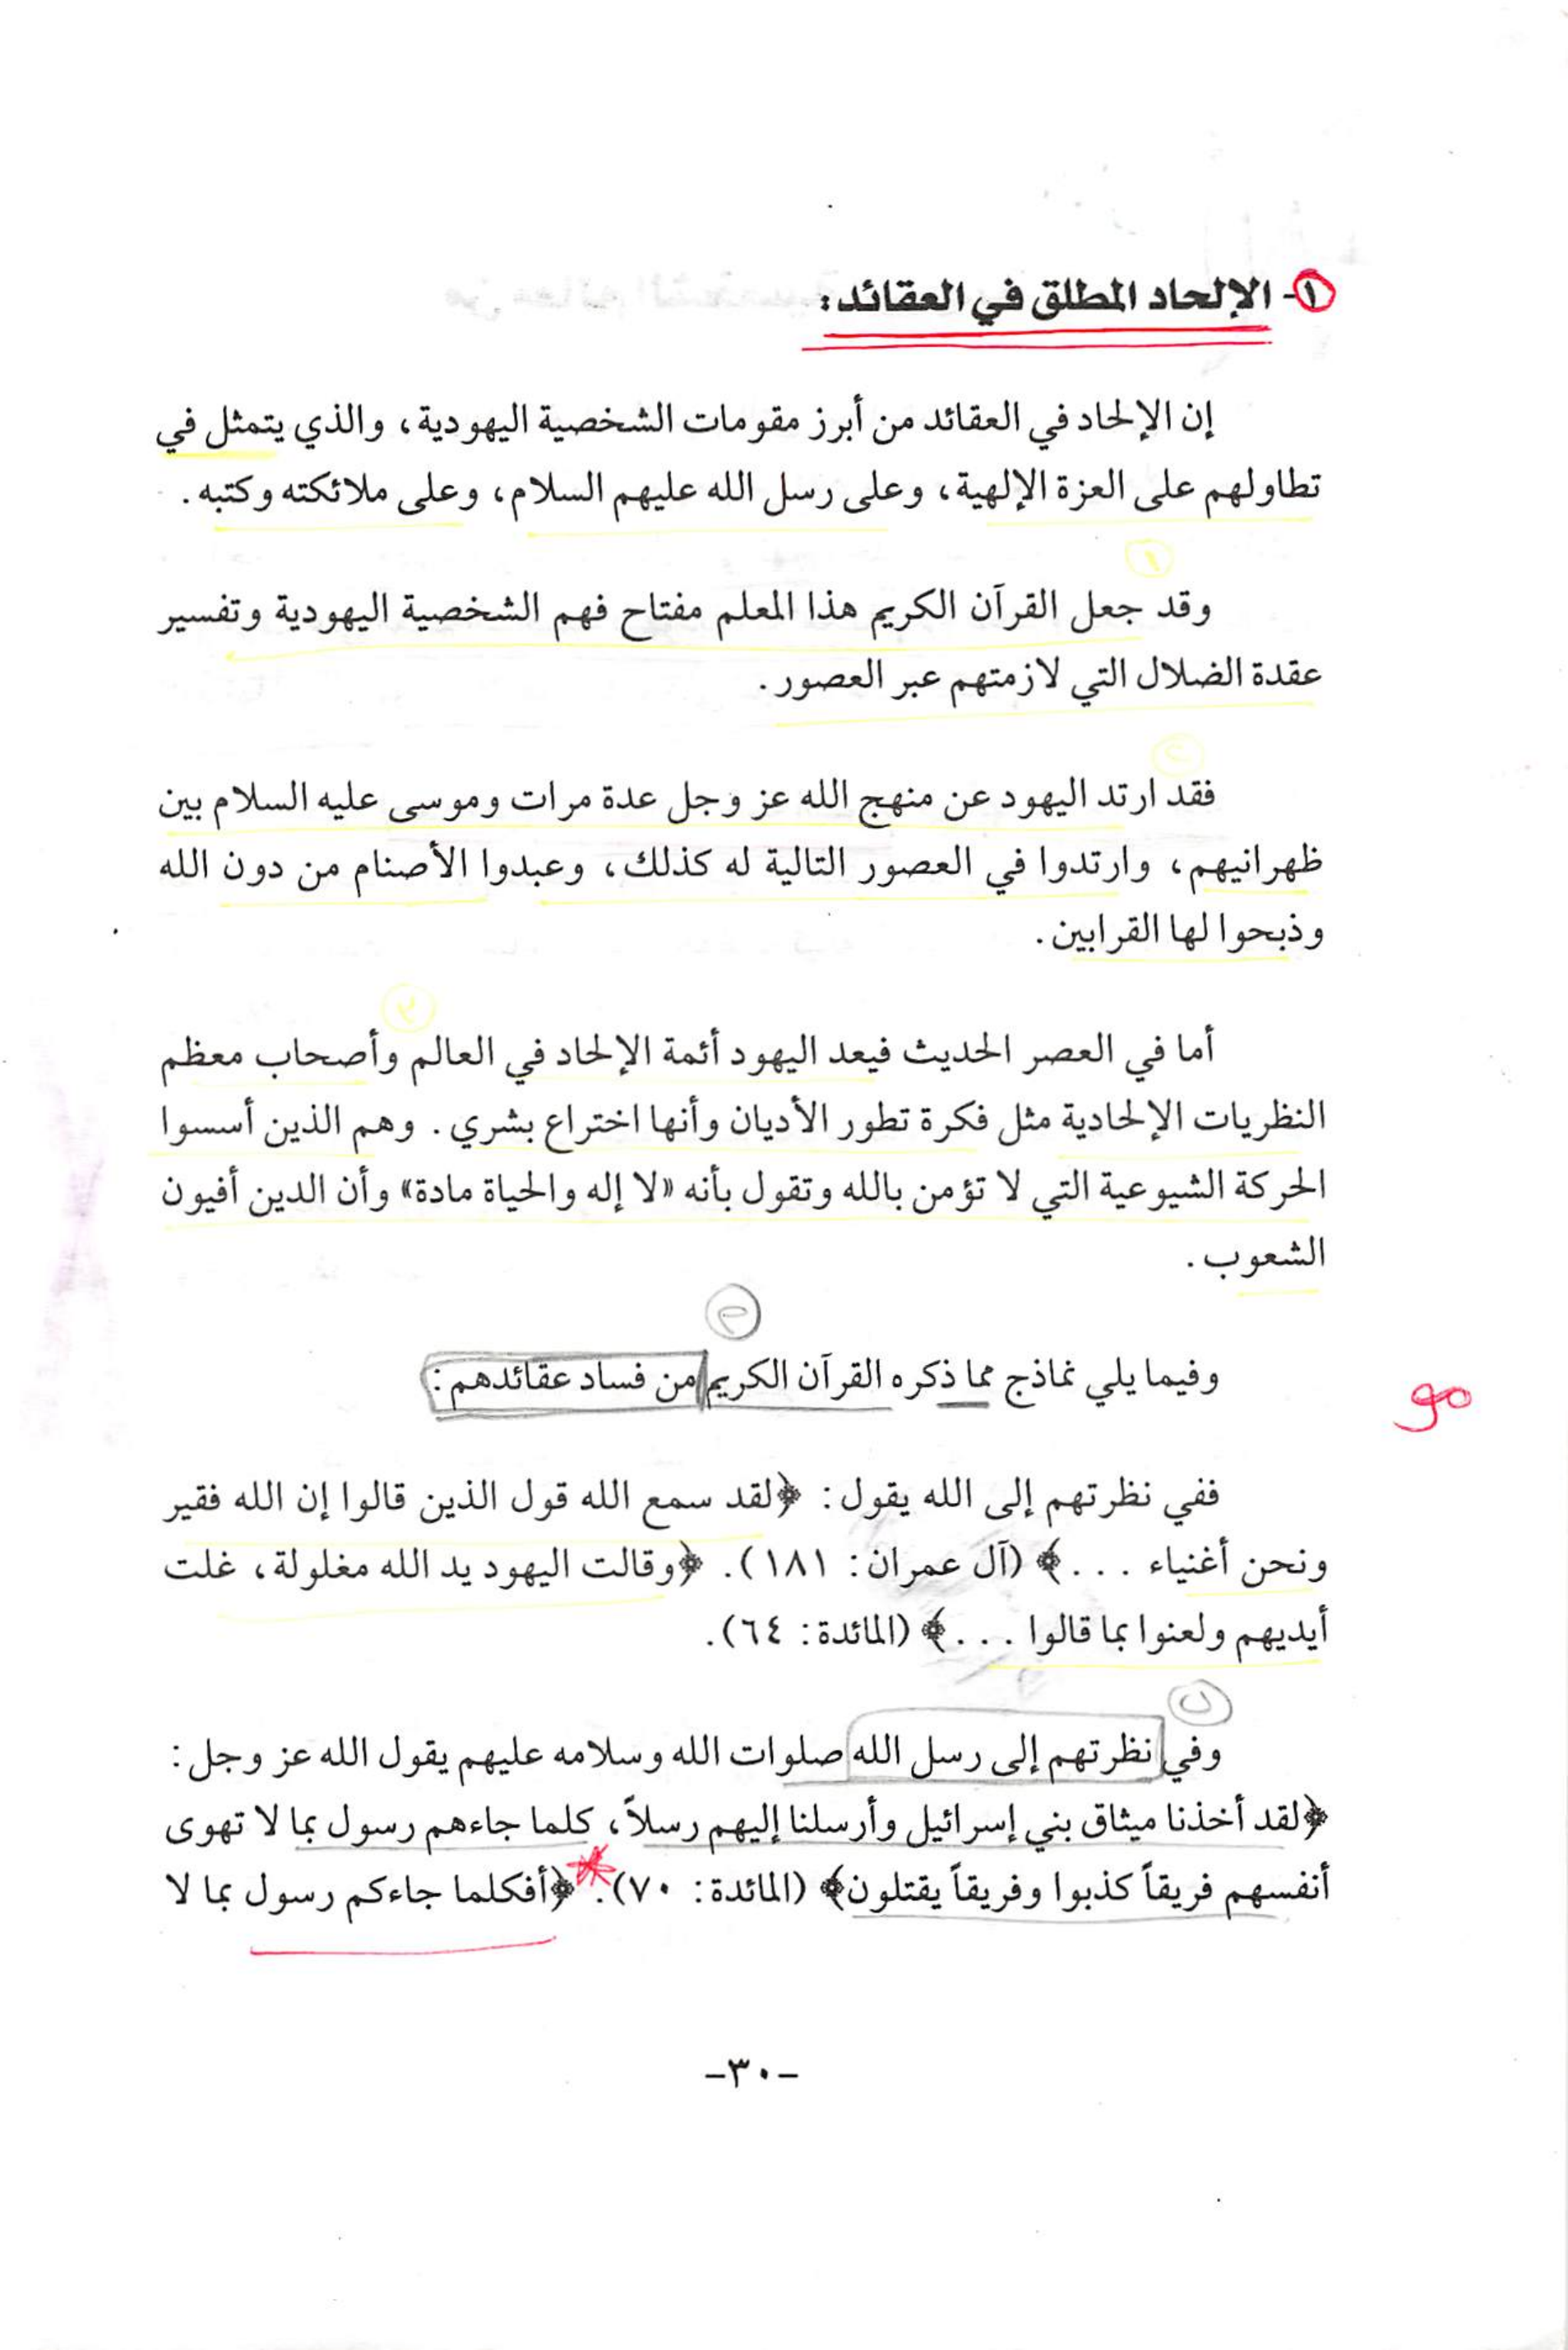 ١- الإلحاد المطلق في العقائد:
إن الإلحاد في العقائد من أبرز مقومات الشخصية اليهودية، والذي يتمثل في
تطاولهم على العزة الإلهية، وعلى رسل الله عليهم السلام، وعلى ملائكته وكتبه.
١
وقد جعل القرآن الكريم هذا المعلم مفتاح فهم الشخصية اليهودية وتفسير
عقدة الضلال التي لازمتهم عبر العصور.
فقد ارتد اليهود عن منهج الله عز وجل عدة مرات وموسى عليه السلام بين
ظهرانيهم، وارتدوا في العصور التالية له كذلك، وعبدوا الأصنام من دون الله
وذبحوا لها القرابين.
أما في العصر الحديث فيعد اليهود أئمة الإلحاد في العالم وأصحاب معظم
النظريات الإلحادية مثل فكرة تطور الأديان وأنها اختراع بشري. وهم الذين أسسوا
الحركة الشيوعية التي لا تؤمن بالله وتقول بأنه «لا إله والحياة مادة» وأن الدين أفيون
الشعوب.
وفيما يلي نماذج مما ذكره القرآن الكريم من فساد عقائدهم:
ففي نظرتهم إلى الله يقول: ﴿لقد سمع الله قول الذين قالوا إن الله فقير
ونحن أغنياء ...﴾ (آل عمران: ١٨١). ﴿وقالت اليهود يد الله مغلولة، غلت
أيديهم ولعنوا بما قالوا ...﴾ (المائدة: ٦٤).
وفي نظرتهم إلى رسل الله صلوات الله وسلامه عليهم يقول الله عز وجل:
﴿لقد أخذنا ميثاق بني إسرائيل وأرسلنا إليهم رسلاً، كلما جاءهم رسول بما لا تهوى
أنفسهم فريقاً كذبوا وفريقاً يقتلون﴾ (المائدة: ٧٠). ﴿أفكلما جاءكم رسول بما لا
-٣٠-